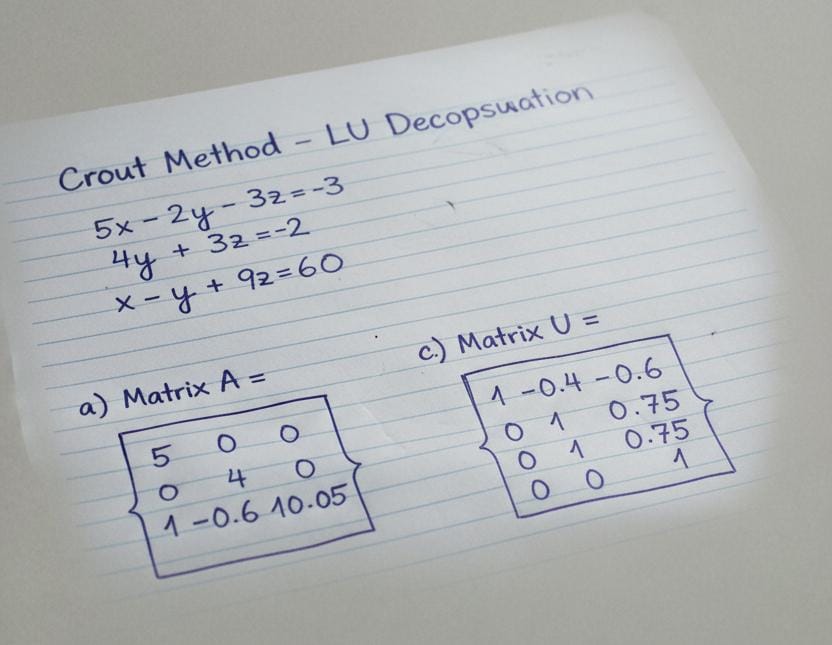 Crout Method - LU Decopsuation
5x - 2y - 3z = -3
4y + 3z = -2
x - y + 9z = 60
a) Matrix A =
5 0 0
0 4 0
1 -0.6 10.05
c.) Matrix U =
1 -0.4 -0.6
0 1 0.75
0 1 0.75
0 0 1